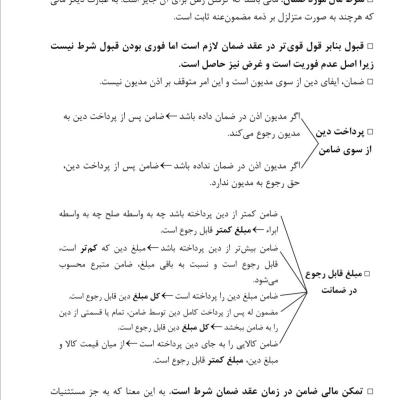 □ شرط مال مورد ضمان: مالی باشد که گرفتن رهن برای آن جایز است. به عبارت دیگر مالی
که هرچند به صورت متزلزل بر ذمه مضمون‌عنه ثابت است.
□ قبول بنابر قول قوی‌تر در عقد ضمان لازم است اما فوری بودن قبول شرط نیست
زیرا اصل عدم فوریت است و غرض نیز حاصل است.
□ ضمان، ایفای دین از سوی مدیون است و این امر متوقف بر اذن مدیون نیست.
□ پرداخت دین
از سوی ضامن
اگر مدیون اذن در ضمان داده باشد ← ضامن پس از پرداخت دین به
مدیون رجوع می‌کند.
اگر مدیون اذن در ضمان نداده باشد ← ضامن پس از پرداخت دین،
حق رجوع به مدیون ندارد.
□ مبلغ قابل رجوع
در ضمانت
ضامن کمتر از دین پرداخته باشد چه به واسطه صلح چه به واسطه
ابراء ← مبلغ کمتر قابل رجوع است.
ضامن بیش‌تر از دین پرداخته باشد ← مبلغ دین که کم‌تر است،
قابل رجوع است و نسبت به باقی مبلغ، ضامن متبرع محسوب
می‌شود.
ضامن مبلغ دین را پرداخته است ← کل مبلغ دین قابل رجوع است.
مضمون له پس از پرداخت کامل دین توسط ضامن، تمام یا قسمتی از دین
را به ضامن ببخشد ← کل مبلغ دین قابل رجوع است.
ضامن کالایی را به جای دین پرداخته است ← از میان قیمت کالا و
مبلغ دین، مبلغ کمتر قابل رجوع است.
□ تمکن مالی ضامن در زمان عقد ضمان شرط است. به این معنا که به جز مستثنیات